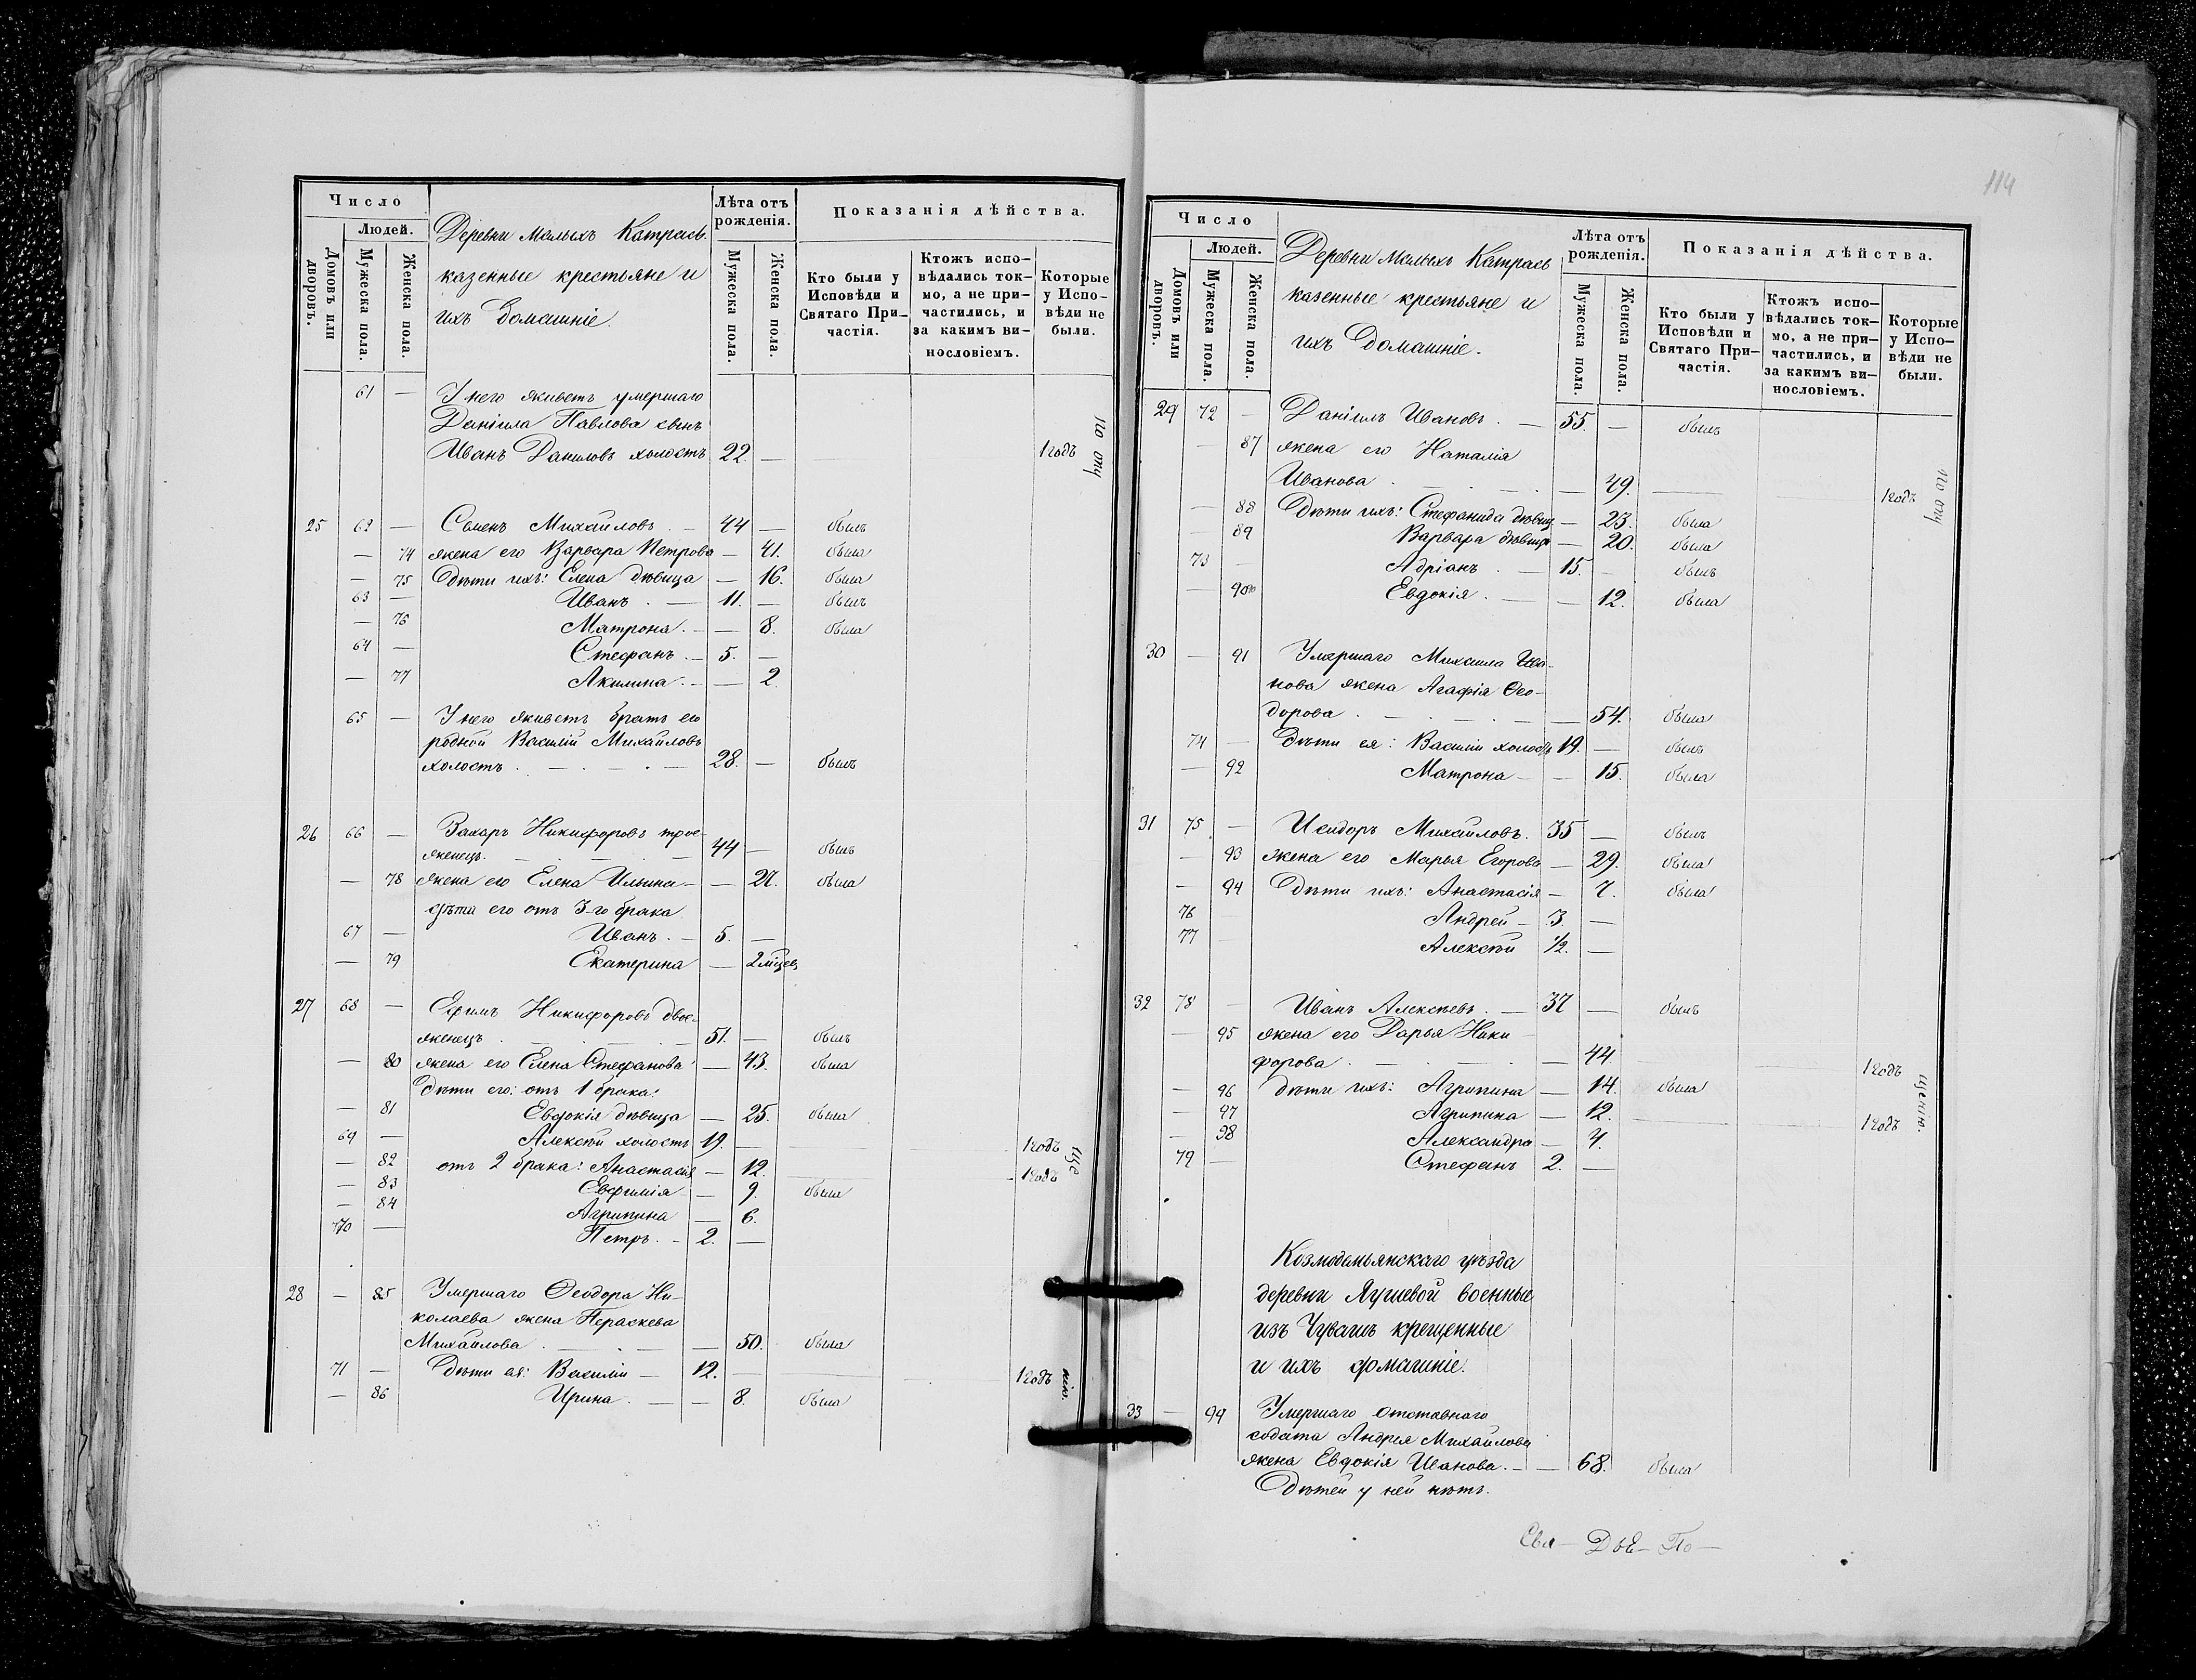 Число
Людей.
Домовъ или дворовъ.
Мужеска пола.
Женска пола.
Деревни Малыхъ Катрась
казенные крестьяне и
ихъ домашніе.
Лѣта отъ рожденія.
Мужеска пола.
Женска пола.
Показанія дѣйства.
Кто были у Исповѣди и Святаго При-
частія.
Ктожъ испо-
вѣдались ток-
мо, а не при-
частились, и
за какимъ ви-
нословіемъ.
Которые
у Испо-
вѣди не
были.
61 — У него живетъ умершаго
Даніила Павлова сынъ
Иванъ Даниловъ холостъ 22. — 1 годъ
по опу
25 62 — Семенъ Михайловъ. — 44 — былъ
— 74 жена его Варвара Петрова — 41. была
— 75 Дѣти ихъ: Елена дѣвица — 16. была
63 — Иванъ. — 11. — былъ
— 76 Матрона. — — 8. была
64 — Стефанъ. — 5. —
— 77 Акилина. — — 2
65 — У него живетъ братъ его
родной Василій Михайловъ
холостъ. — 28. — былъ
26 66 — Захаръ Никифоровъ трое-
женецъ. — 44 — былъ
— 78 жена его Елена Ильина — — 27. была
дѣти его отъ 3-го брака
67 — Иванъ. — 5. —
— 79 Екатерина — 2 мѣсец
27 68 — Ефимъ Никифоровъ двое-
женецъ. — 51. — былъ
— 80 жена его Елена Стефанова — 43. была
Дѣти его: отъ 1 брака:
— 81 Евдокія дѣвица — 25. была
69 — Алексѣй холостъ 19. — 1 годъ
— 82 отъ 2 брака: Анастасія — 12. — 1 годъ
ще
— 83 Евфимія — 9. была
— 84 Агрипина — 6.
70 — Петръ. — 2. —
28 — 85 Умершаго Ѳеодора Ни-
колаева жена Параскева
Михайлова. — — 50. была
71 — Дѣти ея: Василій — 12. — 1 годъ
нію.
— 86 Ирина. — — 8. была
114
Число
Людей.
Домовъ или дворовъ.
Мужеска пола.
Женска пола.
Деревни Малыхъ Катрась
казенные крестьяне и
ихъ домашніе.
Лѣта отъ рожденія.
Мужеска пола.
Женска пола.
Показанія дѣйства.
Кто были у
Исповѣди и
Святаго При-
частія.
Ктожъ испо-
вѣдались ток-
мо, а не при-
частились, и
за какимъ ви-
нословіемъ.
Которые
у Испо-
вѣди не
были.
29 72 — Даніилъ Ивановъ. — 55. — былъ
— 87 жена его Наталія
Иванова. — — 49. — 1 годъ
по опу
— 88 Дѣти ихъ: Стефанида дѣвиц — 23. была
— 89 Варвара дѣвица — 20. была
73 — Адріанъ. — 15. — былъ
— 90 Евдокія. — — 12. была
30 — 91 Умершаго Михаила Ива-
нова жена Агафія Ѳео-
дорова. — — 54. была
74 — Дѣти ея: Василій холостъ 19. — былъ
— 92 Матрона — — 15. была
31 75 — Исидоръ Михайловъ. 35 — былъ
— 93 жена его Марья Егорова — 29. была
— 94 Дѣти ихъ: Анастасія — 7. была
76 — Андрей — 3. —
77 — Алексѣй 1/2. —
32 78 — Иванъ Алексѣевъ. — 37 — былъ
— 95 жена его Дарья Ники
форова. — — 44 — 1 годъ
— 96 дѣти ихъ: Агрипина — 14. была
— 97 Агрипина — 12. — 1 годъ
щенію.
— 98 Александра — 4.
79 — Стефанъ 2. —
Козмодемьянскаго уѣзда
деревни Яушевой военные
изъ Чувашъ крещенные
и ихъ домашніе.
33 — 99 Умершаго отставнаго
солдата Андрея Михайлова
жена Евдокія Иванова. — — 68. была
Дѣтей у ней нѣтъ.